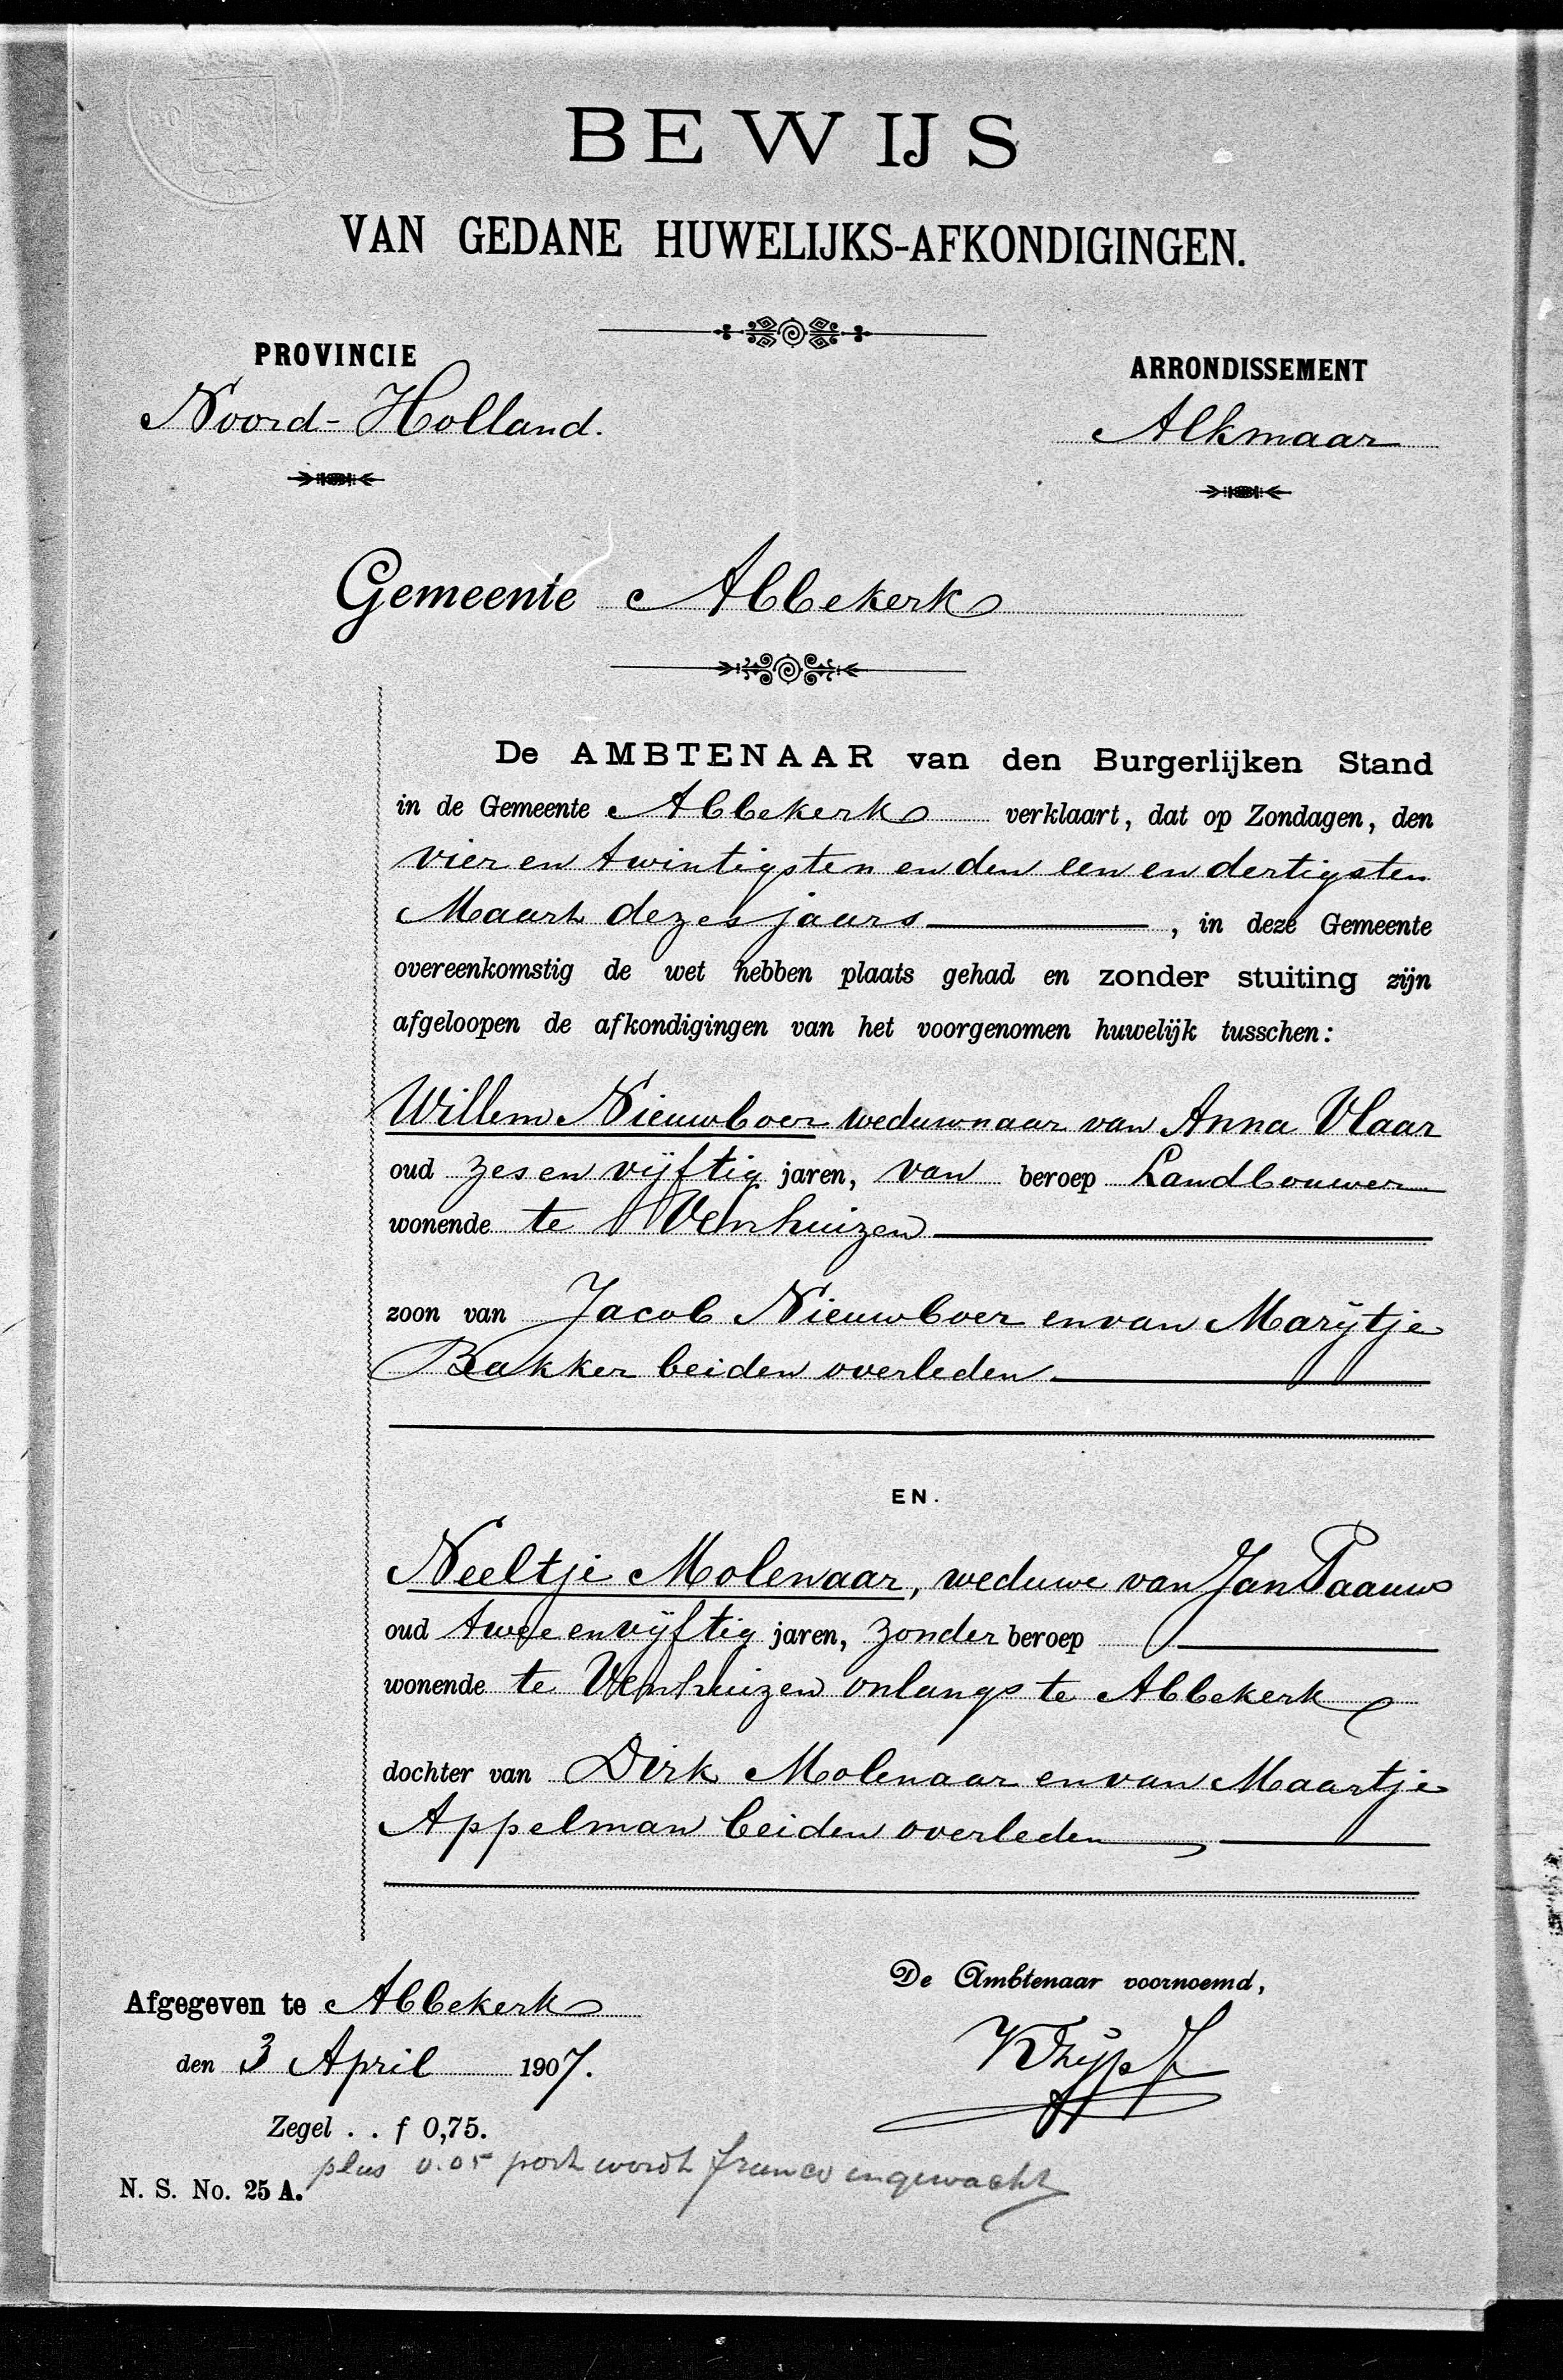 BEWIJS
VAN GEDANE HUWELIJKS-AFKONDIGINGEN.
PROVINCIE
Noord-Holland.
ARRONDISSEMENT
Alkmaar
Gemeente Abbekerk
De AMBTENAAR van den Burgerlijken Stand
in de Gemeente Abbekerk verklaart, dat op Zondagen, den
vier en twintigsten en den een en dertigsten
Maart dezes jaars, in deze Gemeente
overeenkomstig de wet hebben plaats gehad en zonder stuiting zijn
afgeloopen de afkondigingen van het voorgenomen huwelijk tusschen:
Willem Nieuwboer weduwnaar van Anna Vlaar
oud zes en vijftig jaren, van beroep Landbouwer
wonende te Venhuizen
zoon van Jacob Nieuwboer en van Marijtje
Bakker beiden overleden
EN.
Neeltje Molenaar, weduwe van Jan Paauw
oud twee en vijftig jaren, zonder beroep
wonende te Venhuizen onlangs te Abbekerk
dochter van Dirk Molenaar en van Maartje
Appelman beiden overleden
Afgegeven te Abbekerk
den 3 April 1907.
De Ambtenaar voornoemd,
Zegel . . f 0,75.
plus 0.05 port wordt franco ingewacht
N. S. No. 25 A.